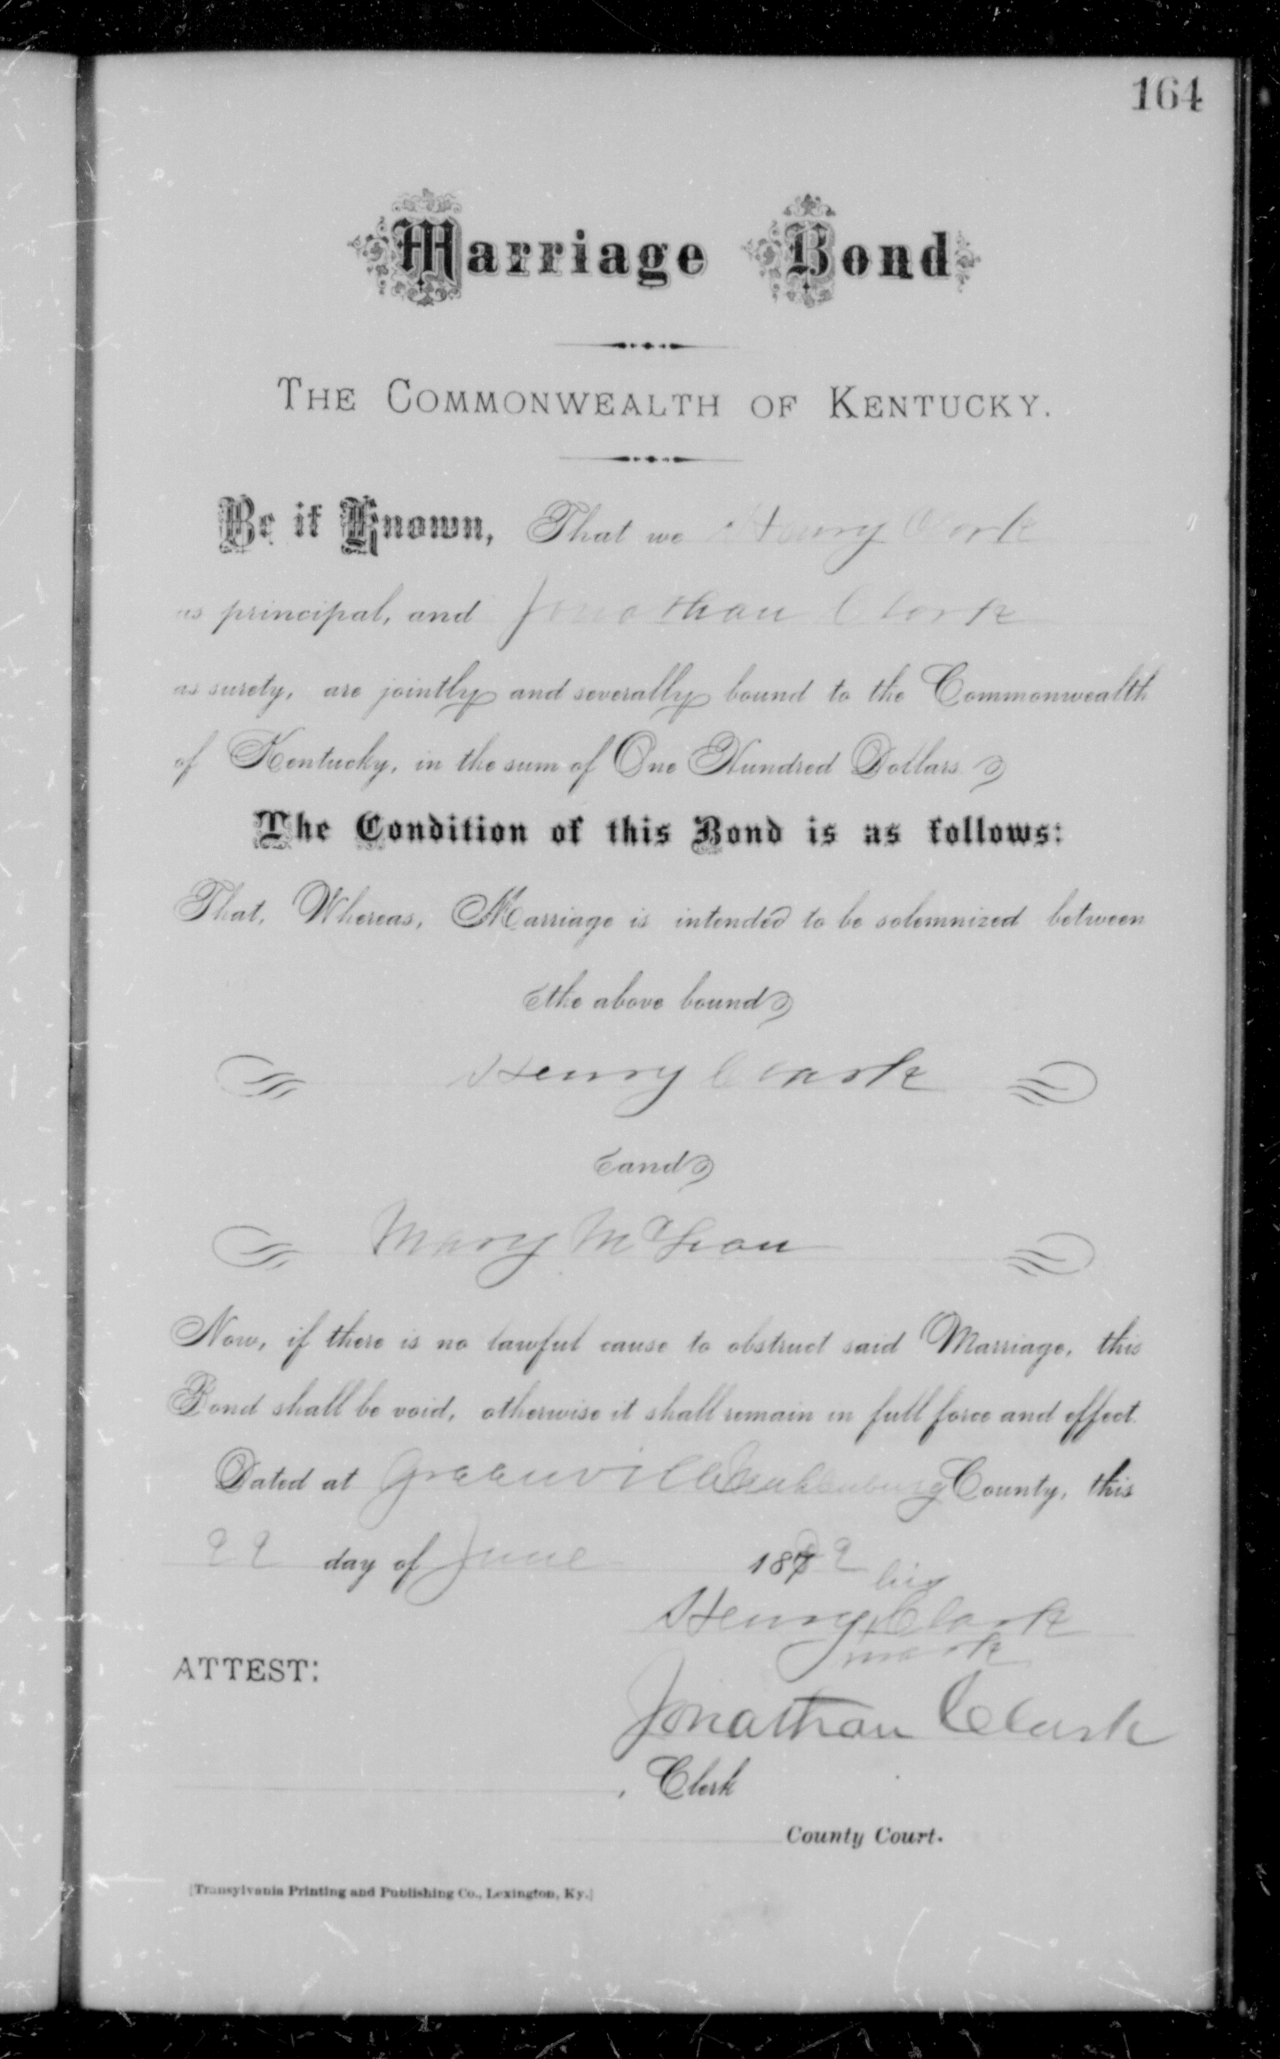 164
Marriage Bond
THE COMMONWEALTH OF KENTUCKY.
Be it Known, That we Henry Clark
as principal, and Jonathan Clark
as surety, are jointly and severally bound to the Commonwealth
of Kentucky, in the sum of One Hundred Dollars.
The Condition of this Bond is as follows:
That, Whereas, Marriage is intended to be solemnized between
the above bound
Henry Clark
and
Mary
Now, if there is no lawful cause to obstruct said Marriage, this
Bond shall be void, otherwise it shall remain in full force and effect.
Dated at Greenville Muhlenburg County, this
22 day of June
his
Henry Clark
mark
ATTEST:
Jonathan Clark
, Clerk
County Court.
[Transylvania Printing and Publishing Co., Lexington, Ky.]